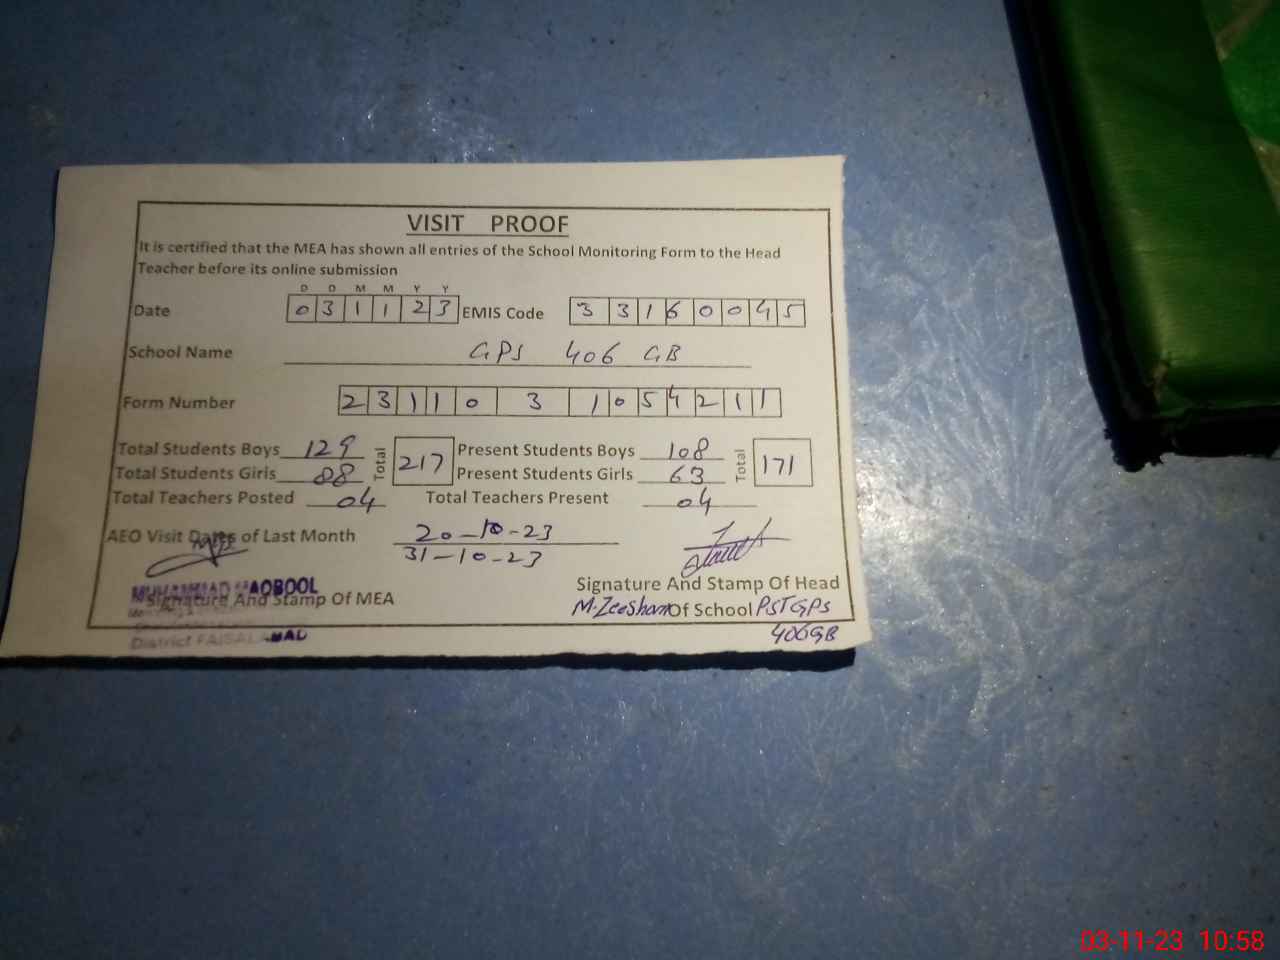 VISIT PROOF
It is certified that the MEA has shown all entries of the School Monitoring Form to the Head
Teacher before its online submission
D D M M Y Y
Date 0 3 1 1 2 3 EMIS Code 3 3 1 6 0 0 4 5
School Name GPS 406 GB
Form Number 2 3 1 1 0 3 1 0 5 4 2 1 1
Total Students Boys 129 Total 217 Present Students Boys 108 Total 171
Total Students Girls 88 Present Students Girls 63
Total Teachers Posted 04 Total Teachers Present 04
AEO Visit Dates of Last Month 20-10-23
31-10-23
MUHAMMAD MAQBOOL Signature And Stamp Of Head
Signature And Stamp Of MEA M.Zeeshan Of School PST GPS
District FAISALABAD 406GB
03-11-23 10:58